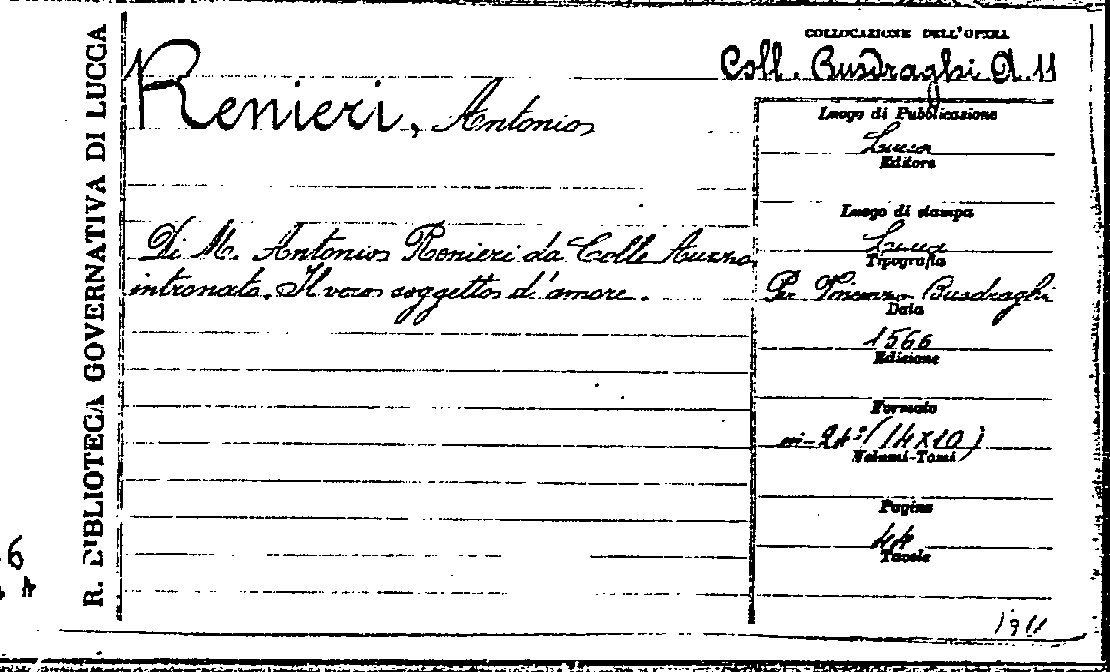 R. BIBLIOTECA GOVERNATIVA DI LUCCA
Renieri, Antonio
Di M. Antonio Renieri da Colle
intronato. Il vero soggetto d'amore.
COLLOCAZIONE DELL'OPERA
Coll. Busdraghi A. 11
Luogo di Pubblicazione
Lucca
Editore
Luogo di stampa
Lucca
Tipografia
Per Vincenzo Busdraghi
Data
1566
Edizione
Formato
in-24° (14x10)
Volumi-Tomi
Pagine
44
Tavole
6
A